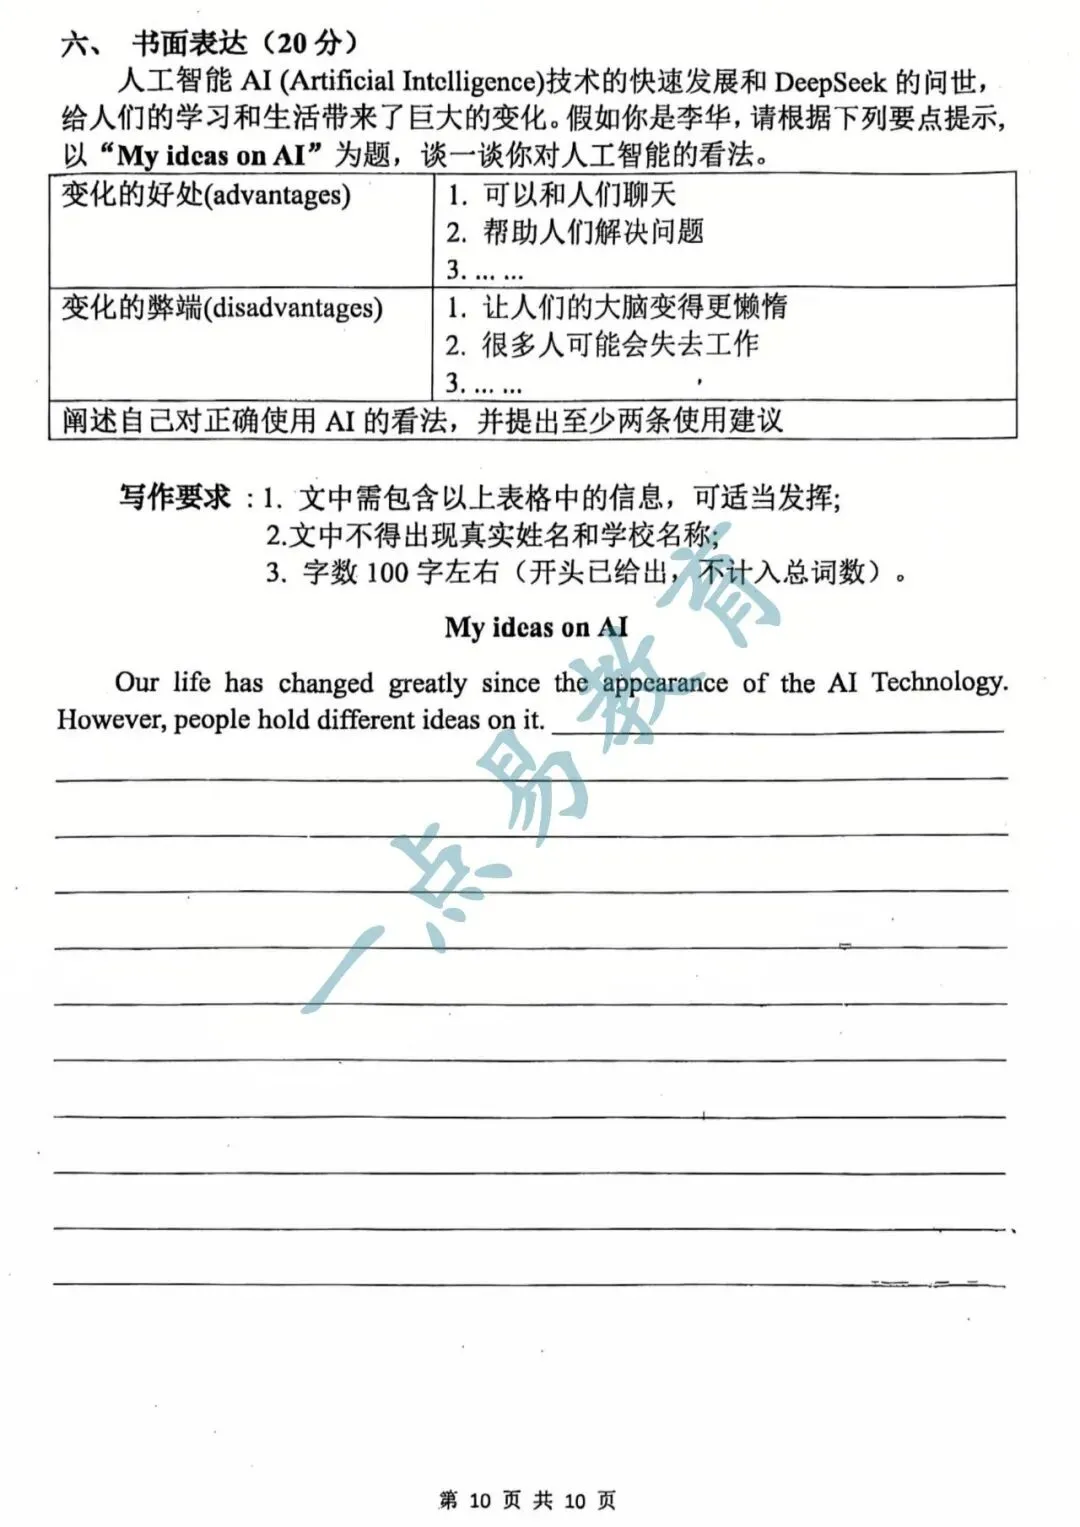 六、 书面表达（20 分）
人工智能 AI (Artificial Intelligence)技术的快速发展和 DeepSeek 的问世，
给人们的学习和生活带来了巨大的变化。假如你是李华，请根据下列要点提示，
以“My ideas on AI”为题，谈一谈你对人工智能的看法。
变化的好处(advantages)
1. 可以和人们聊天
2. 帮助人们解决问题
3. ... ...
变化的弊端(disadvantages)
1. 让人们的大脑变得更懒惰
2. 很多人可能会失去工作
3. ... ...
阐述自己对正确使用 AI 的看法，并提出至少两条使用建议
写作要求：1. 文中需包含以上表格中的信息，可适当发挥;
2.文中不得出现真实姓名和学校名称;
3. 字数 100 字左右（开头已给出，不计入总词数）。
My ideas on AI
Our life has changed greatly since the appearance of the AI Technology.
However, people hold different ideas on it.
一点易教育
第 10 页 共 10 页